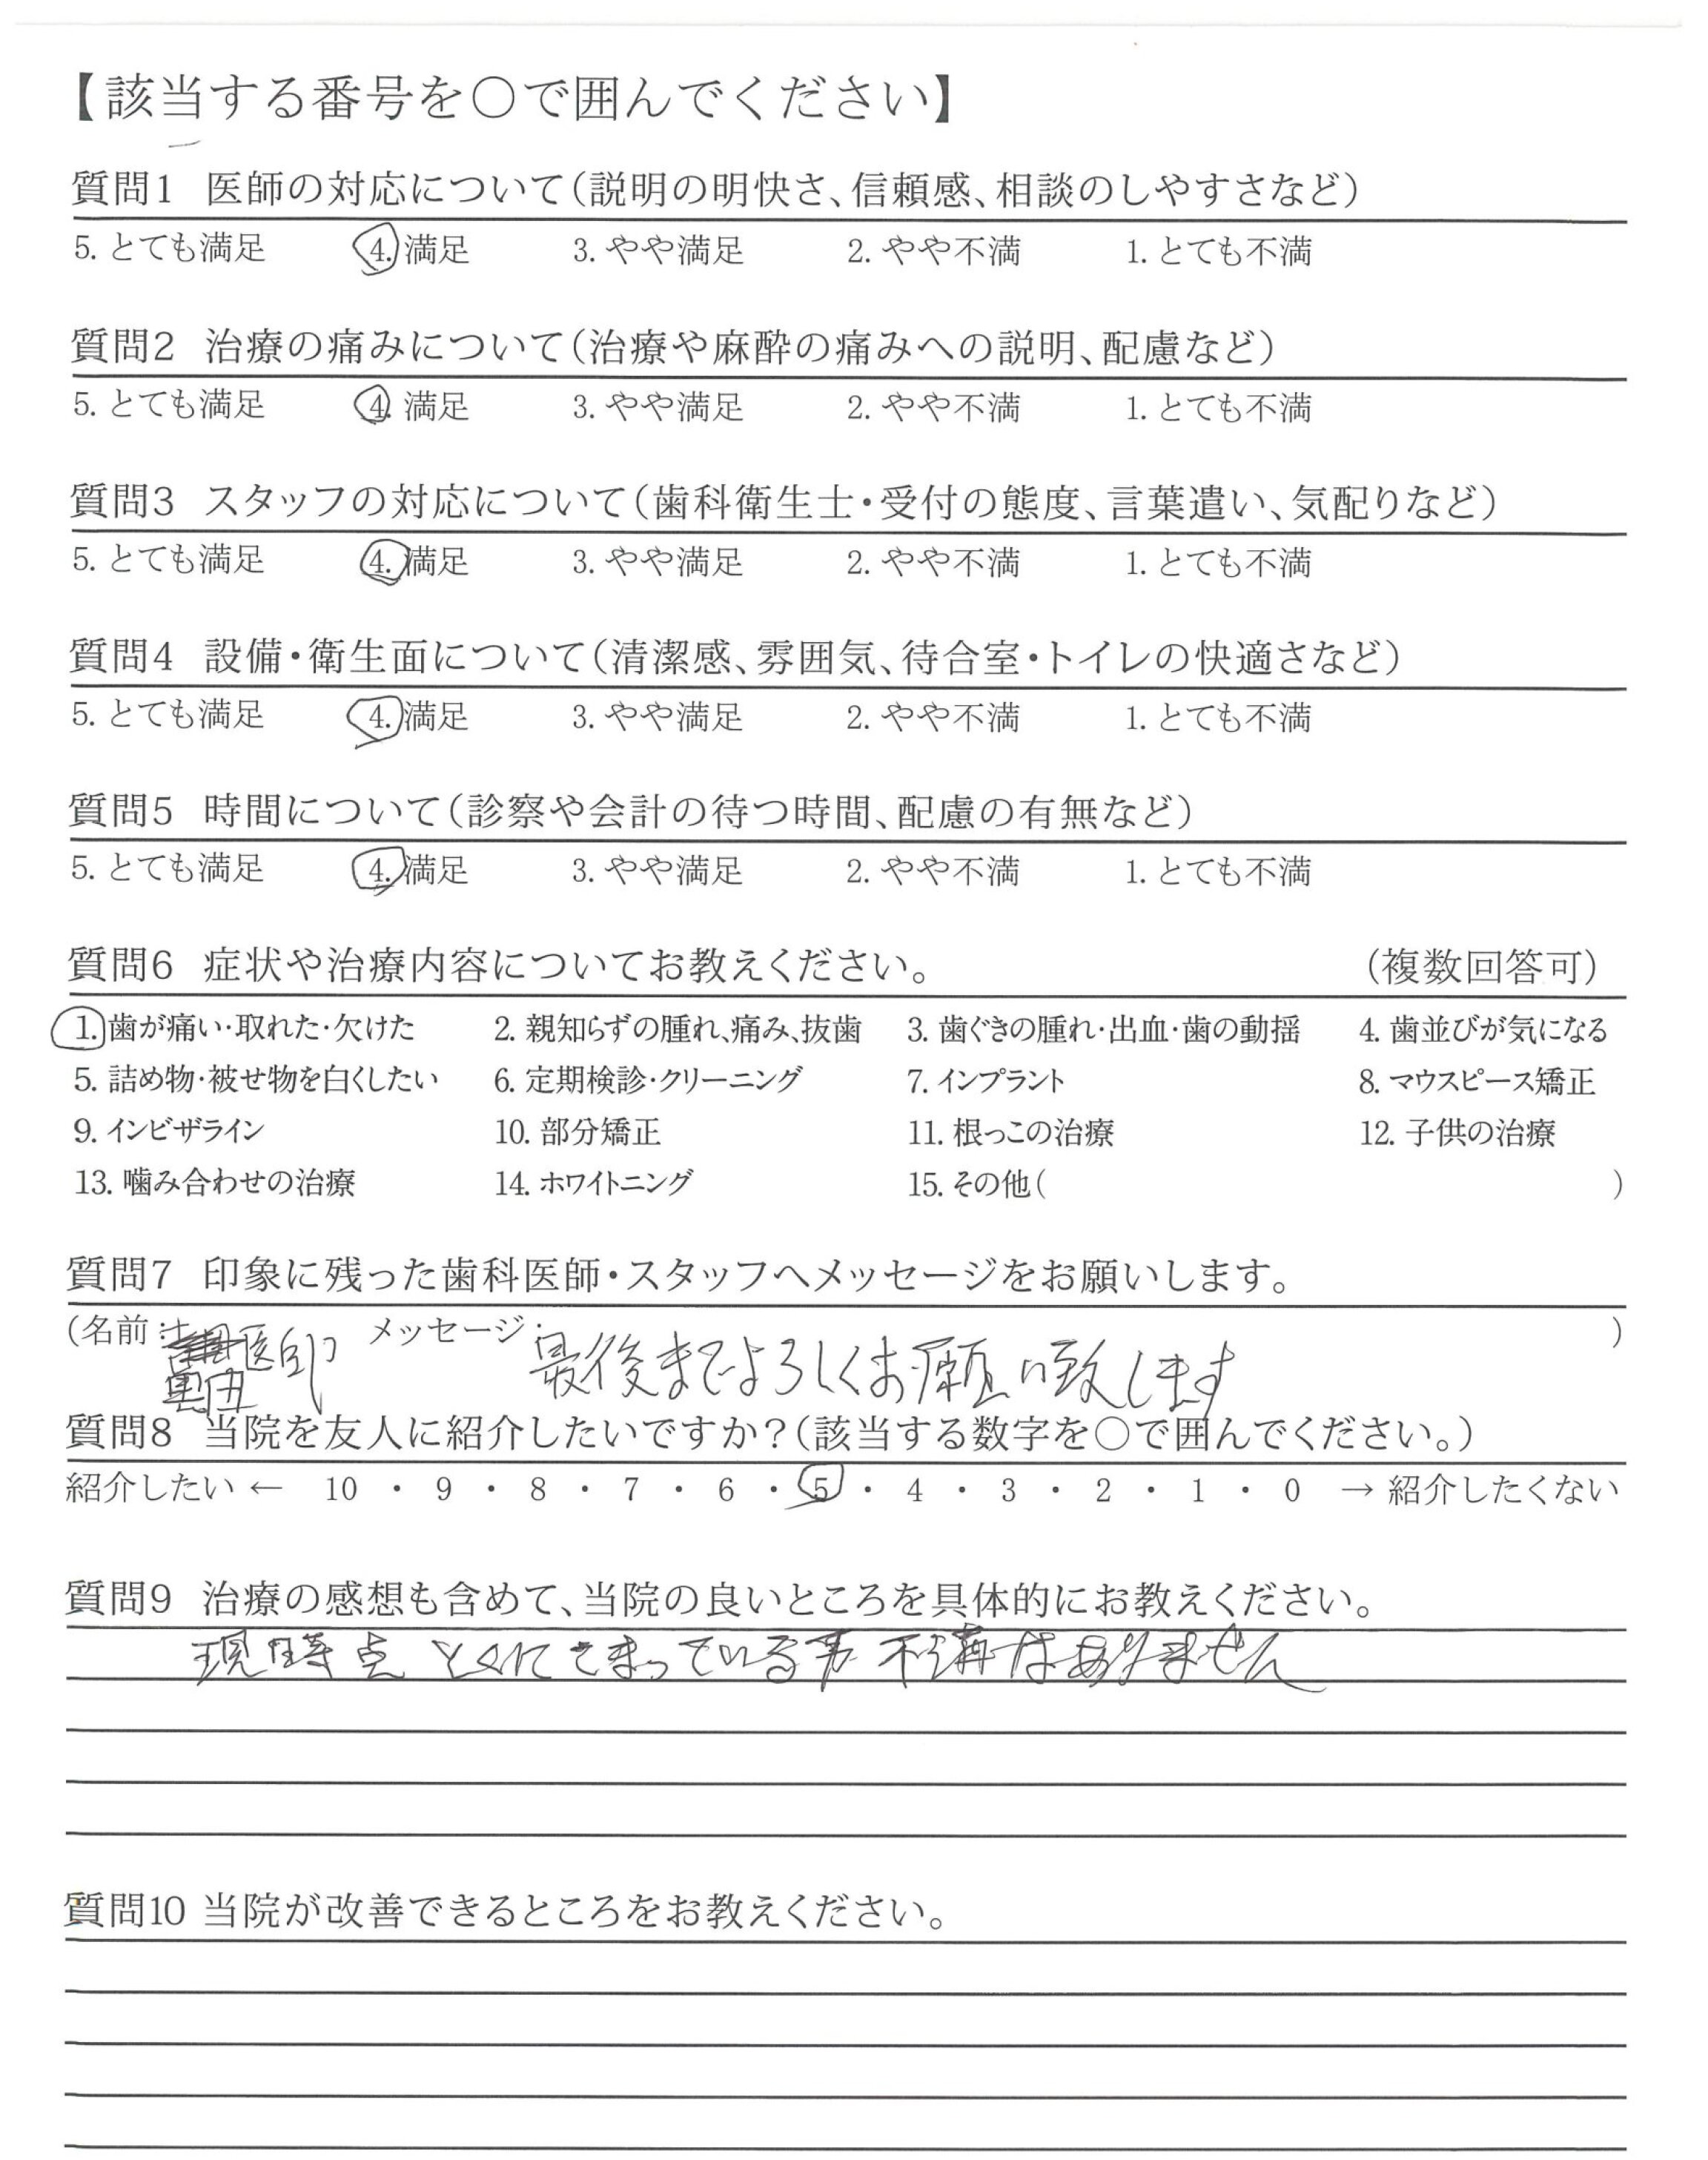 【該当する番号を○で囲んでください】
質問1 医師の対応について(説明の明快さ、信頼感、相談のしやすさなど)
5. とても満足 4. 満足 3. やや満足 2. やや不満 1. とても不満
質問2 治療の痛みについて(治療や麻酔の痛みへの説明、配慮など)
5. とても満足 4. 満足 3. やや満足 2. やや不満 1. とても不満
質問3 スタッフの対応について(歯科衛生士・受付の態度、言葉遣い、気配りなど)
5. とても満足 4. 満足 3. やや満足 2. やや不満 1. とても不満
質問4 設備・衛生面について(清潔感、雰囲気、待合室・トイレの快適さなど)
5. とても満足 4. 満足 3. やや満足 2. やや不満 1. とても不満
質問5 時間について(診察や会計の待つ時間、配慮の有無など)
5. とても満足 4. 満足 3. やや満足 2. やや不満 1. とても不満
質問6 症状や治療内容についてお教えください。 (複数回答可)
1. 歯が痛い・取れた・欠けた 2. 親知らずの腫れ、痛み、抜歯 3. 歯ぐきの腫れ・出血・歯の動揺 4. 歯並びが気になる
5. 詰め物・被せ物を白くしたい 6. 定期検診・クリーニング 7. インプラント 8. マウスピース矯正
9. インビザライン 10. 部分矯正 11. 根っこの治療 12. 子供の治療
13. 噛み合わせの治療 14. ホワイトニング 15. その他( )
質問7 印象に残った歯科医師・スタッフへメッセージをお願いします。
(名前: 医師 メッセージ: 最後までよろしくお願い致します )
質問8 当院を友人に紹介したいですか?(該当する数字を○で囲んでください。)
紹介したい ← 10 ・ 9 ・ 8 ・ 7 ・ 6 ・ 5 ・ 4 ・ 3 ・ 2 ・ 1 ・ 0 → 紹介したくない
質問9 治療の感想も含めて、当院の良いところを具体的にお教えください。
現時点 とくにこまっている事 不満はありません
質問10 当院が改善できるところをお教えください。